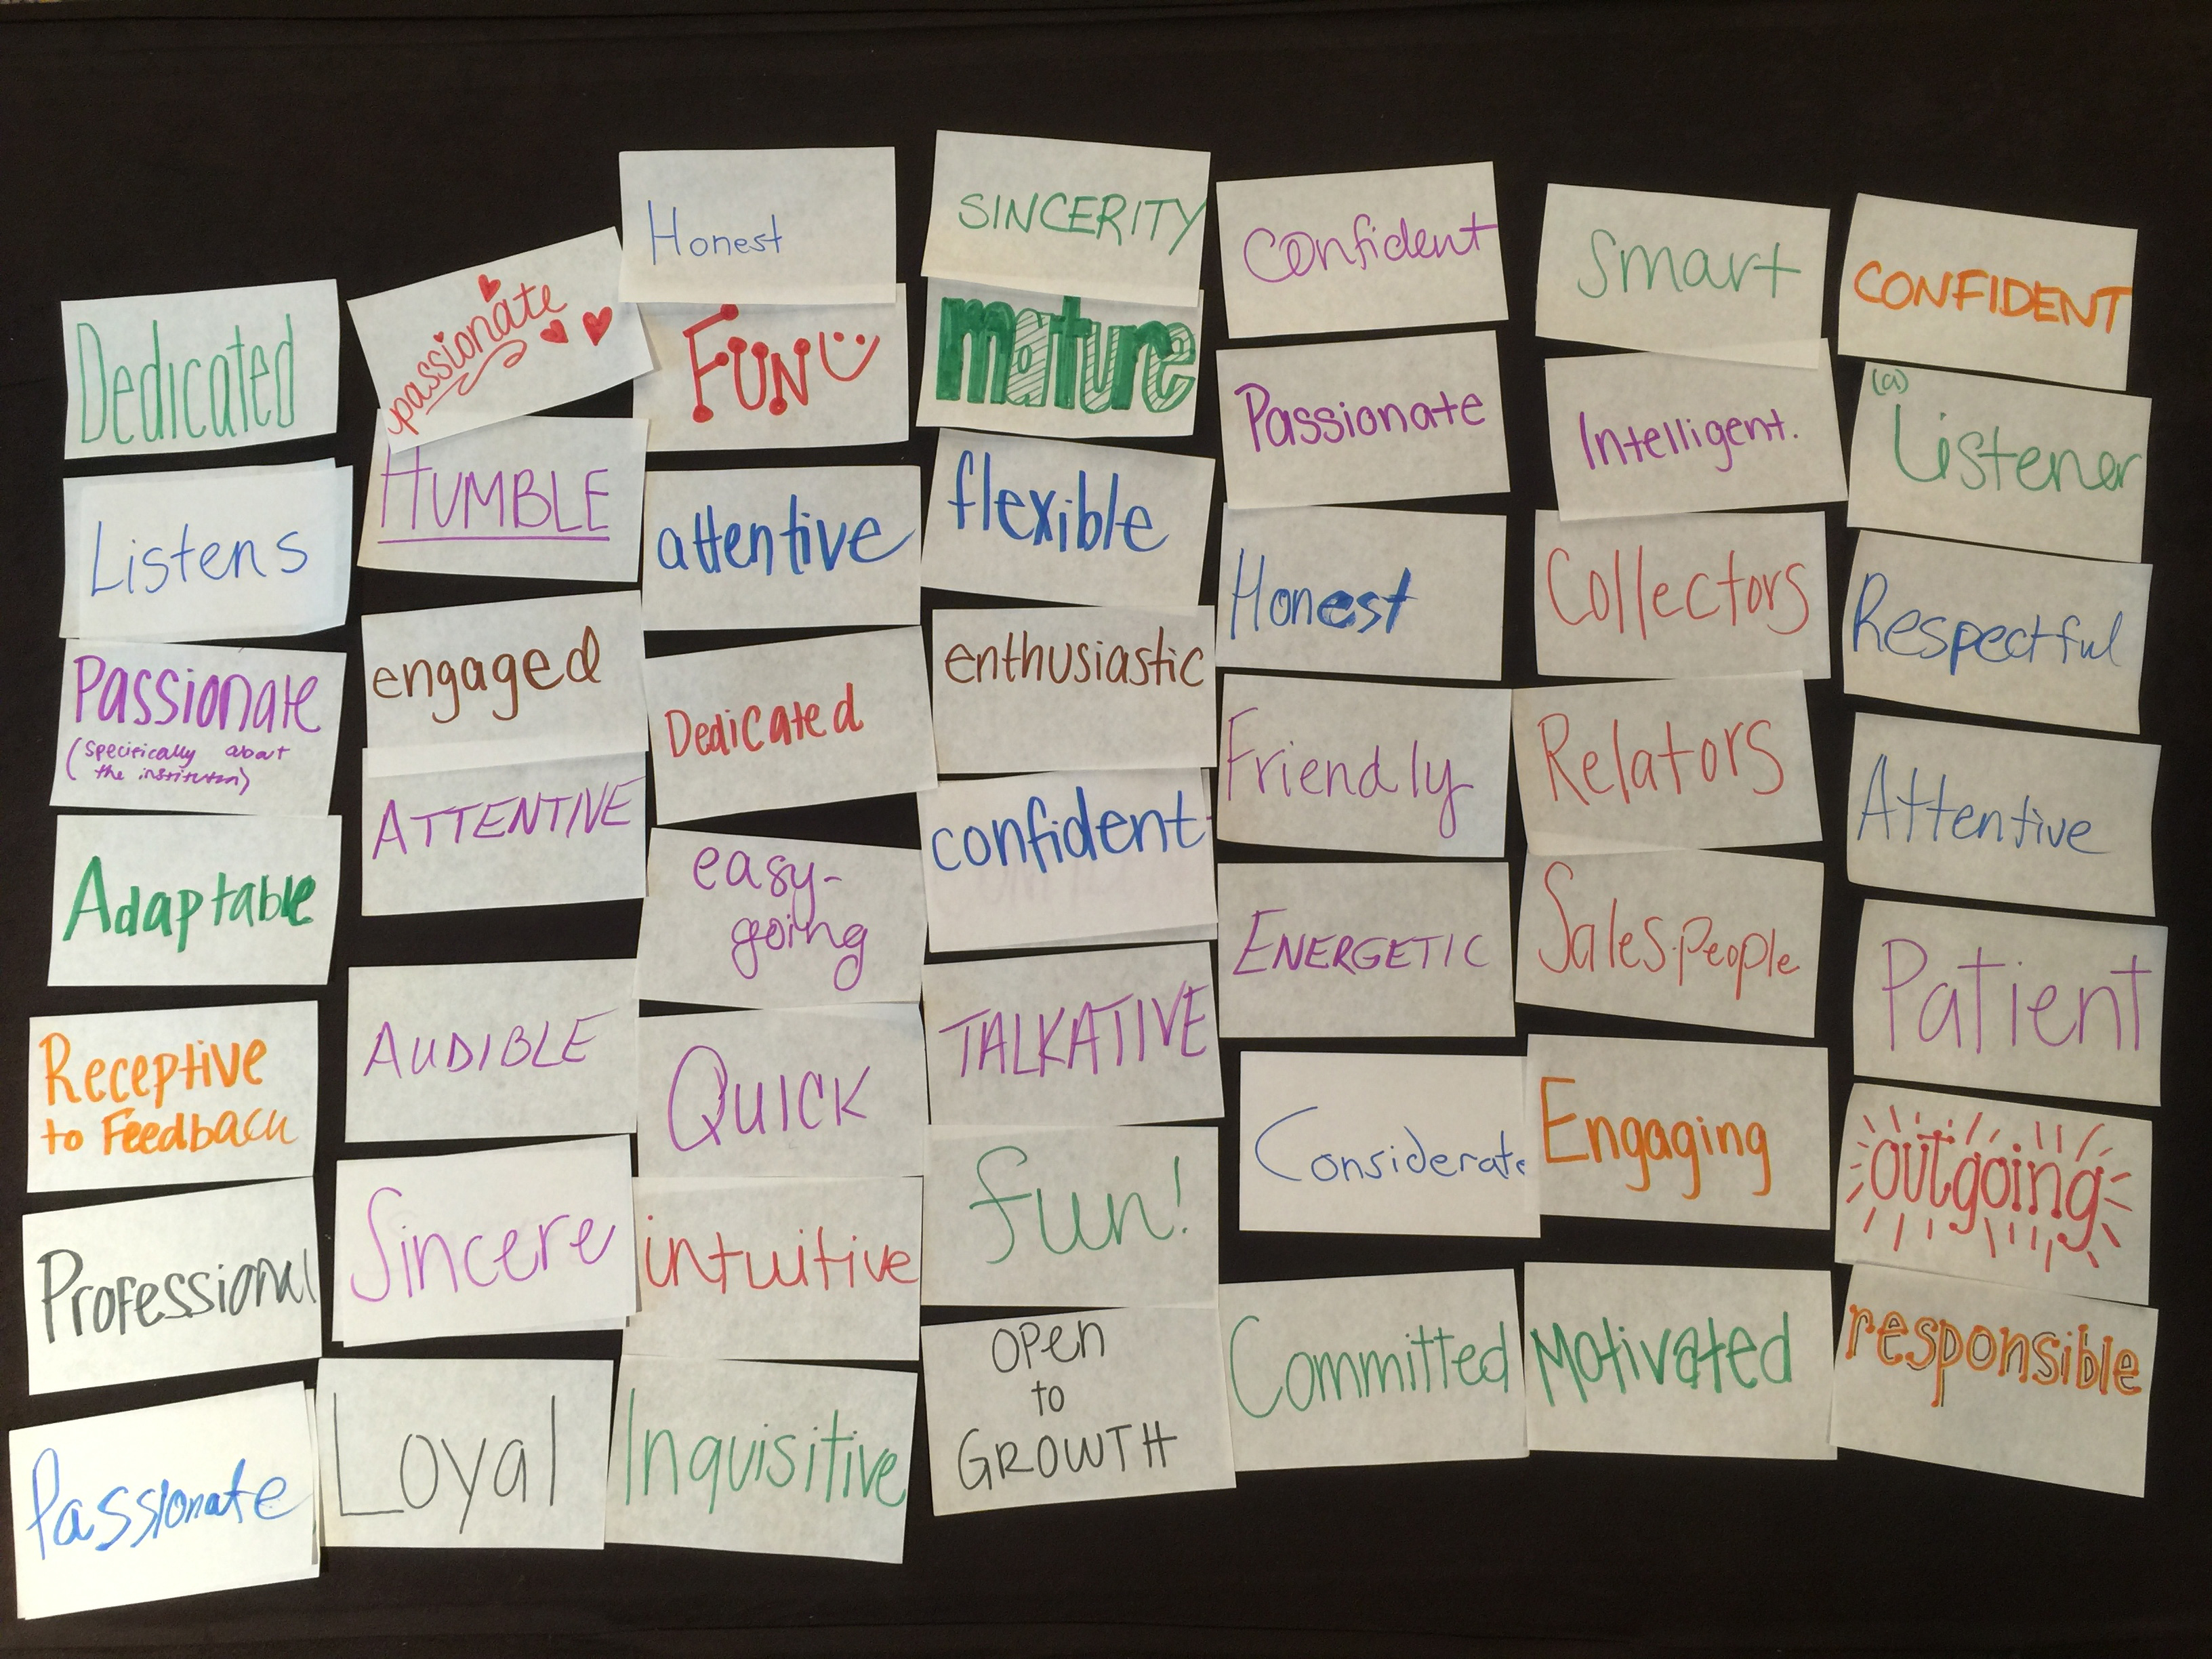 Dedicated
Listens
Passionate
(specifically about
the institution)
Adaptable
Receptive
to Feedback
Professional
Passionate
passionate
HUMBLE
engaged
ATTENTIVE
AUDIBLE
Sincere
Loyal
Honest
FUN
attentive
Dedicated
easy-
going
QUICK
intuitive
Inquisitive
SINCERITY
mature
flexible
enthusiastic
confident
TALKATIVE
fun!
OPEN
to
GROWTH
Confident
Passionate
Honest
Friendly
ENERGETIC
Considerate
Committed
Smart
Intelligent.
Collectors
Relators
Sales-people
Engaging
Motivated
CONFIDENT
(a)
Listener
Respectful
Attentive
Patient
outgoing
responsible